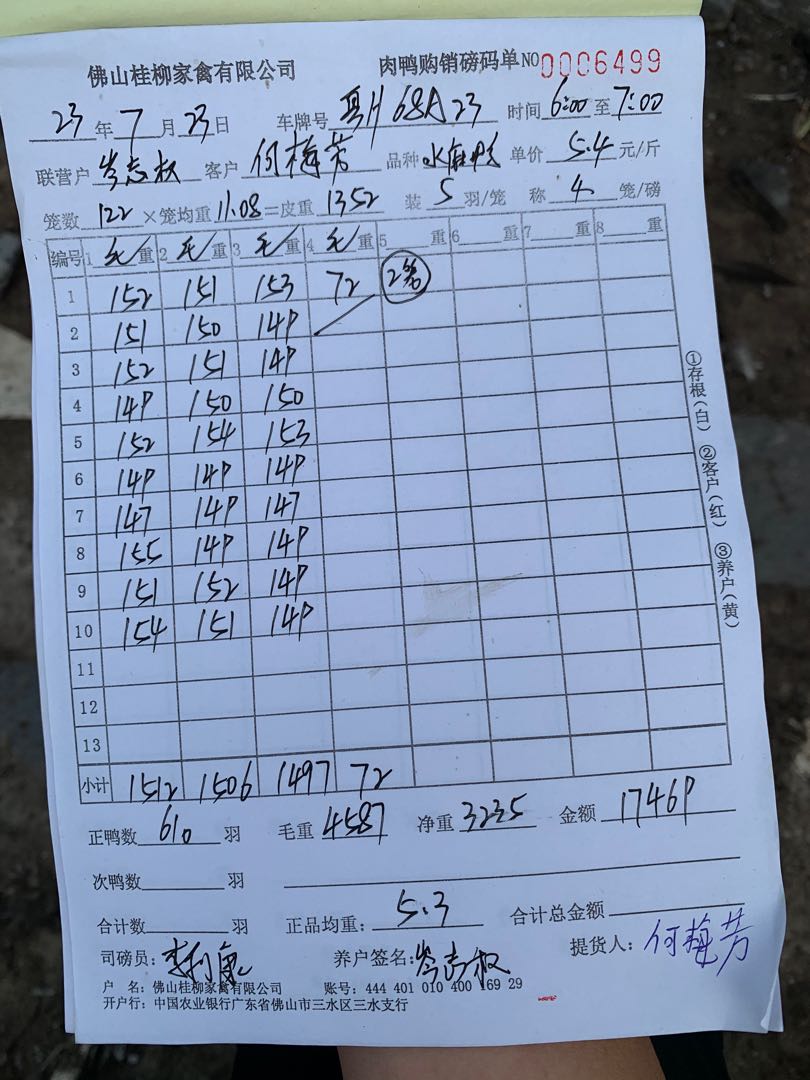 佛山桂柳家禽有限公司 肉鸭购销磅码单 NO 0006499
23年7月23日 车牌号 粤H 68A23 时间 6:00 至 7:00
联营户 岑志权 客户 何梅芳 品种 水麻鸭 单价 5.4 元/斤
笼数 122 ×笼均重 11.08 =皮重 1352 装 5 羽/笼 称 4 笼/磅
编号 1 毛重 2 毛重 3 毛重 4 毛重 5 重 6 重 7 重 8 重
1 152 151 153 72 2笼
2 151 150 149
3 152 151 149
4 149 150 150
5 152 154 153
6 149 149 149
7 147 149 147
8 155 149 149
9 151 152 149
10 154 151 149
11
12
13
小计 1512 1506 1497 72
正鸭数 610 羽 毛重 4587 净重 3235 金额 17469
次鸭数 羽
合计数 羽 正品均重: 5.3 合计总金额
司磅员: 李利康 养户签名: 岑志权 提货人: 何梅芳
户 名: 佛山桂柳家禽有限公司 账号: 444 401 010 400 169 29
开户行: 中国农业银行广东省佛山市三水区三水支行
①存根(白) ②客户(红) ③养户(黄)